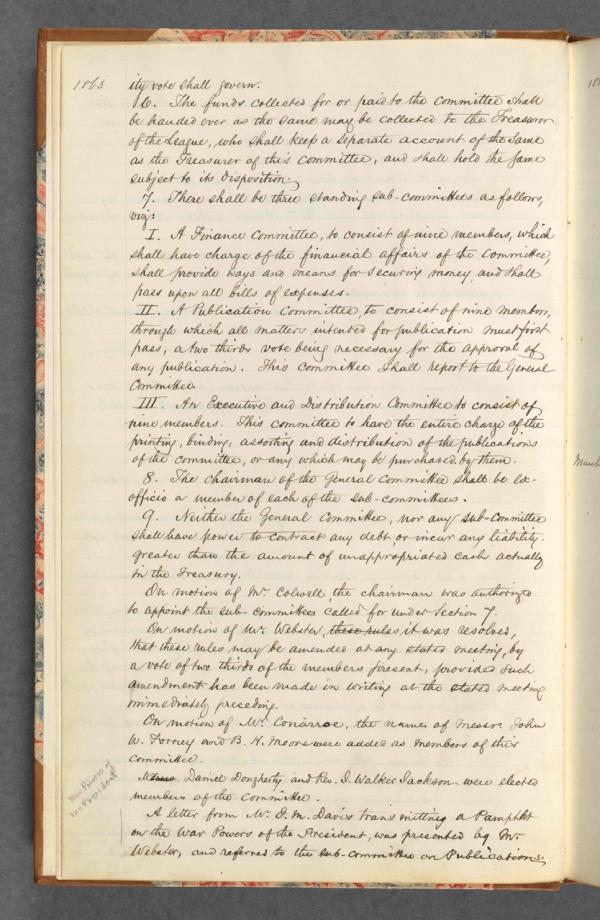 1863
ity vote shall govern.
6. The funds collected for or paid to the Committee shall
be handed over as the same may be collected to the Treasurer
of the League, who shall keep a separate account of the same
as the Treasurer of this Committee, and shall hold the same
subject to its disposition.
7. There shall be three standing sub-committees as follows,
viz:
I. A Finance Committee, to consist of nine members, which
shall have charge of the financial affairs of the Committee,
shall provide ways and means for securing money, and shall
pass upon all bills of expenses.
II. A Publication Committee, to consist of nine members,
through which all matters intended for publication must first
pass, a two thirds vote being necessary for the approval of
any publication. This committee shall report to the General
Committee.
III. An Executive and Distribution Committee to consist of
nine members. This committee to have the entire charge of the
printing, binding, assorting and distribution of the publications
of the committee, or any which may be purchased by them.
8. The chairman of the General Committee shall be ex-
officio a member of each of the sub-committees.
9. Neither the General Committee, nor any sub-Committee
shall have power to contract any debt or incur any liability
greater than the amount of unappropriated cash actually
in the Treasury.
On motion of Mr. Colwell, the chairman was authorized
to appoint the sub-committees called for under Section 7.
On motion of Mr. Webster, these rules it was resolved,
that these rules may be amended at any stated meeting, by
a vote of two thirds of the members present, provided such
amendment has been made in writing at the stated meeting
immediately preceding.
On motion of Mr. Conarroe, the names of Messrs. John
W. Forney and B. H. Moore were added as members of this
committee.
Daniel Dougherty and Rev. S. Walker Jackson were elected
members of the Committee.
War Powers of
the President
A letter from Mr. E. M. Davis transmitting a Pamphlet
on the War Powers of the President, was presented by Mr.
Webster, and referred to the sub-committee on Publications.